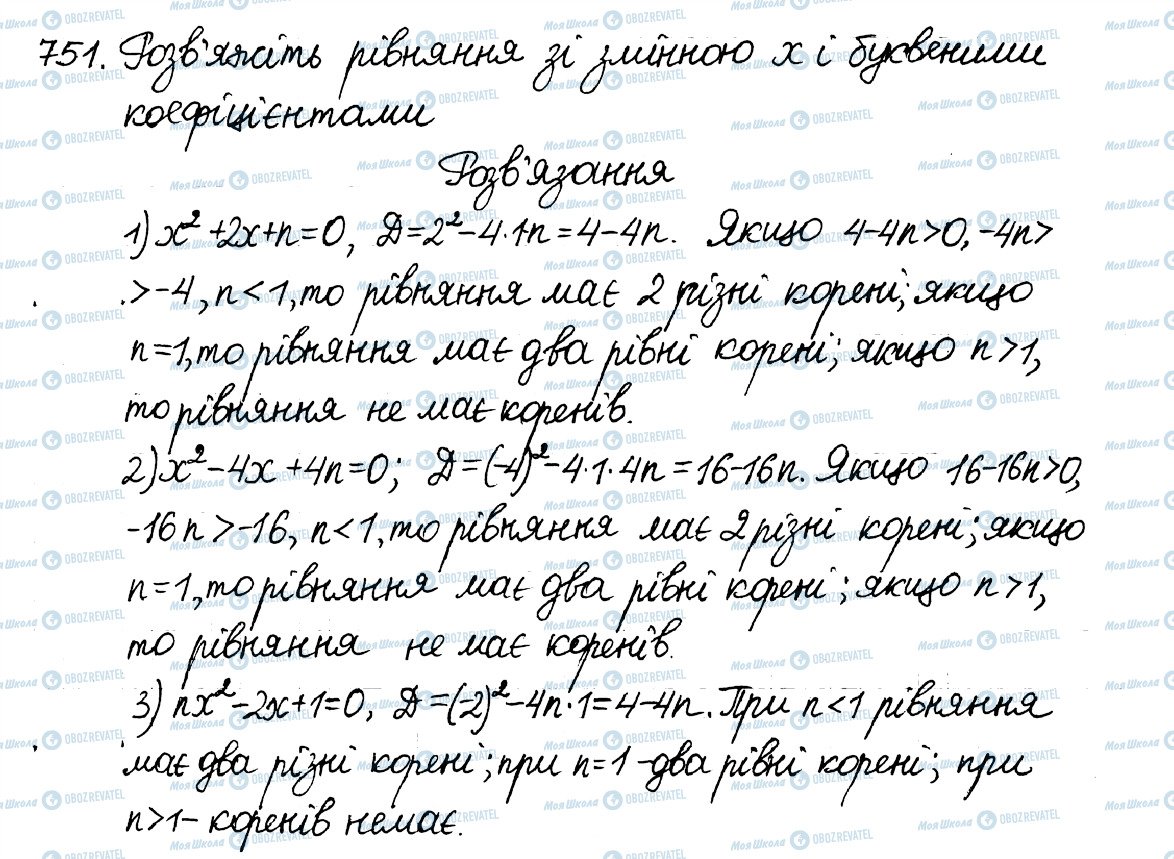 751. Розв'яжіть рівняння зі змінною x і буквеними
коефіцієнтами
Розв'язання
1) x²+2x+n=0, Д=2²-4·1·n=4-4n. Якщо 4-4n>0, -4n>
>-4, n<1, то рівняння має 2 різні корені; якщо
n=1, то рівняння має два рівні корені; якщо n>1,
то рівняння не має коренів.
2) x²-4x+4n=0; Д=(-4)²-4·1·4n=16-16n. Якщо 16-16n>0,
-16n>-16, n<1, то рівняння має 2 різні корені; якщо
n=1, то рівняння має два рівні корені; якщо n>1,
то рівняння не має коренів.
3) nx²-2x+1=0, Д=(-2)²-4n·1=4-4n. При n<1 рівняння
має два різні корені; при n=1 - два рівні корені; при
n>1- коренів немає.